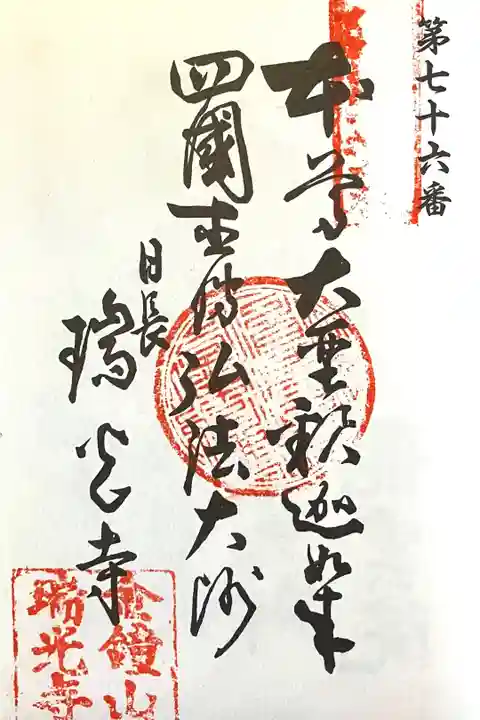 第七十六番
本尊大聖釈迦如来
四國直傳弘法大師
日長
瑞光寺
金鐘山
瑞光寺